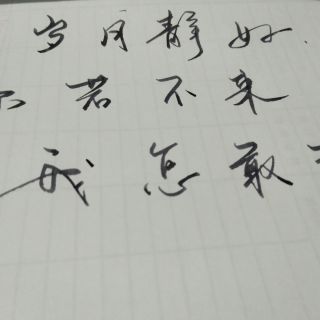 岁月静好
若不来
我怎敢